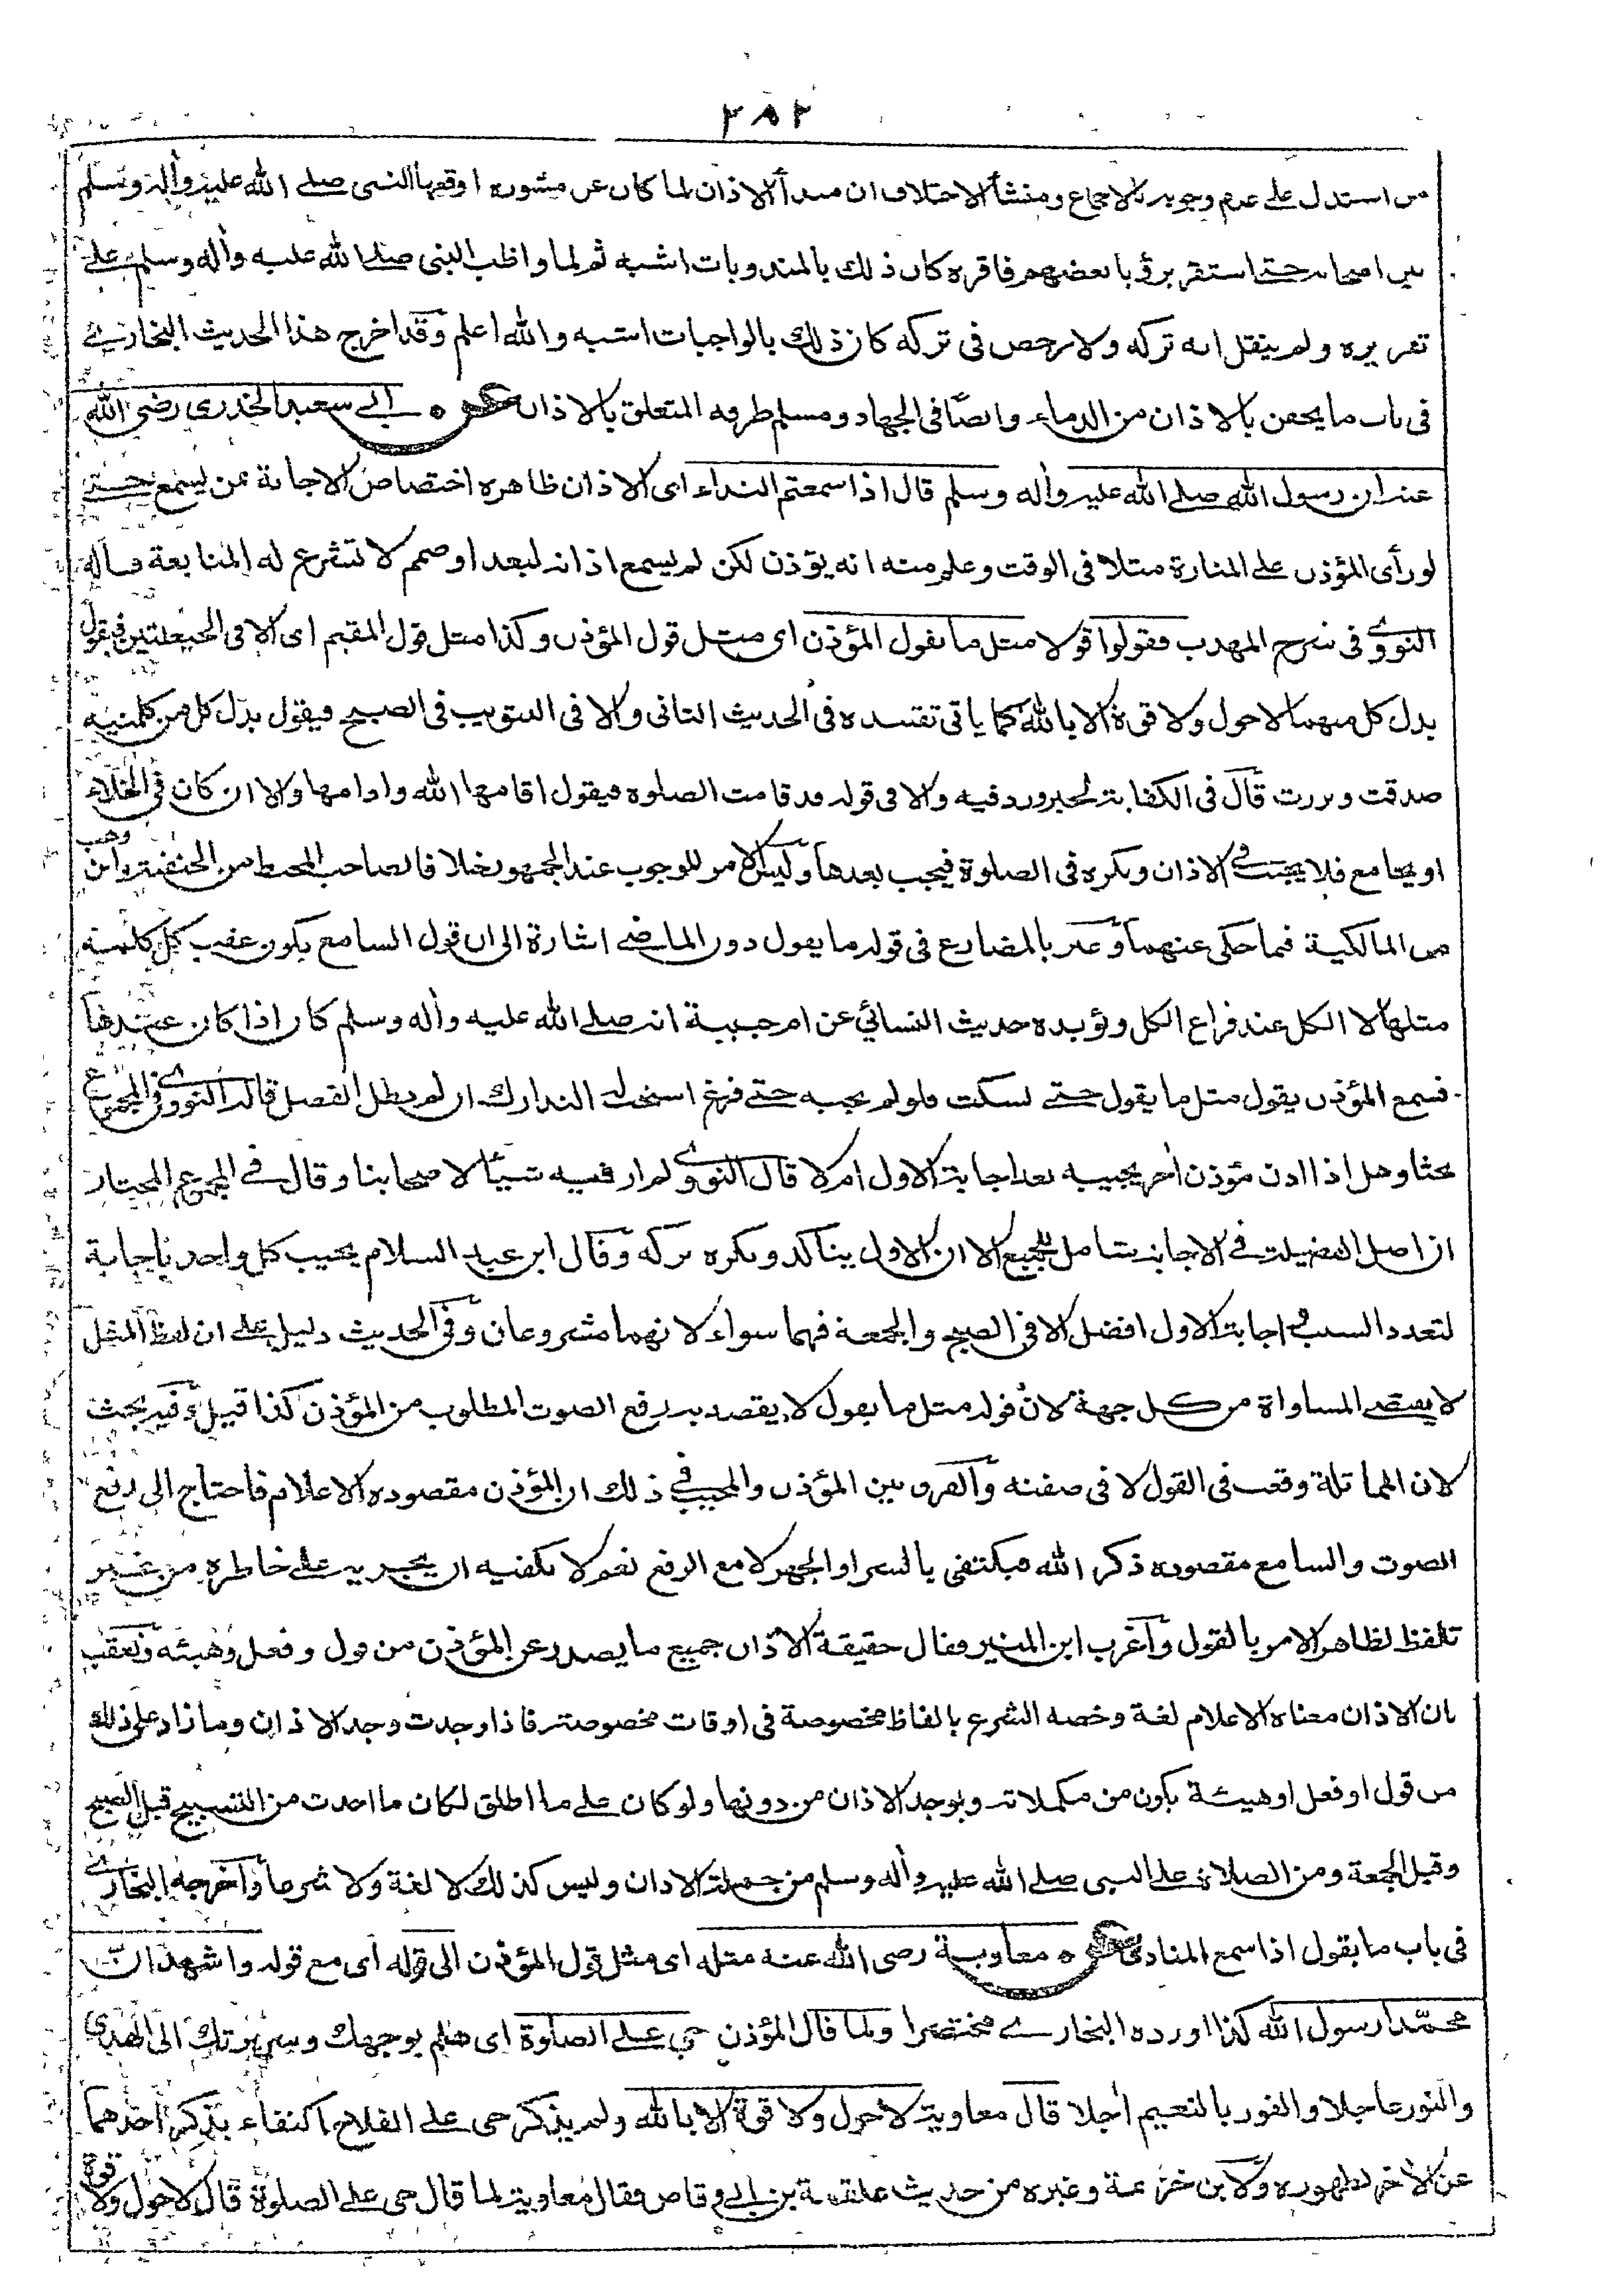 ٢٨٢
من استدل على عدم وجوبه بالاجماع ومنشأ الاختلاف ان مبدأ الاذان لما كان عن مشورة اوقعها النبى صلى الله عليه وأله وسلم
بين اصحابه حتى استقر برؤيا بعضهم فاقره كان ذلك بالمندوبات اشبه ثم لما واظب النبى صلى الله عليه وأله وسلم على
تقريره ولم ينقل انه تركه ولا رخص فى تركه كان ذلك بالواجبات اشبه والله اعلم وقد اخرج هذا الحديث البخارى
فى باب ما يحقن بالاذان من الدماء وايضا فى الجهاد ومسلم طرفه المتعلق بالاذان عن ابى سعيد الخدرى رضى الله
عنه ان رسول الله صلى الله عليه وأله وسلم قال اذا سمعتم النداء اى الاذان ظاهره اختصاص الاجابة بمن يسمع حتى
لو رأى المؤذن على المنارة مثلا فى الوقت وعلم منه انه يؤذن لكن لم يسمع اذانه لبعد او صمم لا تشرع له المتابعة قاله
النووى فى شرح المهذب فقولوا قولا مثل ما يقول المؤذن اى مثل قول المؤذن وكذا مثل قول المقيم اى الا فى الحيعلتين فيقول
بدل كل منهما لا حول ولا قوة الا بالله كما ياتى تقييده فى الحديث الثانى والا فى التثويب فى الصبح فيقول بدل كل من كلمتيه
صدقت وبررت قال فى الكفاية لخبر ورد فيه والا فى قوله قد قامت الصلوة فيقول اقامها الله وادامها والا ان كان فى الخلاء
او يجامع فلا يجيب فى الاذان ويكره فى الصلوة فيجيب بعدها وليس الامر للوجوب عند الجمهور خلافا لصاحب المحيط من الحنفية وابن وهب
من المالكية فيما حكى عنهما وعبر بالمضارع فى قوله ما يقول دون الماضى اشارة الى ان قول السامع يكون عقب كل كلمة
مثلها لا الكل عند فراغ الكل ويؤيده حديث النسائي عن ام حبيبة انه صلى الله عليه وأله وسلم كان اذا كان عندها
فسمع المؤذن يقول مثل ما يقول حتى يسكت فلو لم يجبه حتى فرغ استحب له التدارك ان لم يطل الفصل قاله النووى فى المجموع
بحثا وهل اذا اذن مؤذن أخر يجيبه بعد اجابة الاول ام لا قال النووى لم ار فيه شيئا لاصحابنا وقال فى المجموع المختار
ان اصل الفضيلة فى الاجابة شامل للجميع الا ان الاول يتاكد ويكره تركه وقال ابن عبد السلام يجيب كل واحد باجابة
لتعدد السبب واجابة الاول افضل الا فى الصبح والجمعة فهما سواء لانهما مشروعان وفى الحديث دليل على ان لفظ المثل
لا يقتضى المساواة من كل جهة لان قوله مثل ما يقول لا يقصد به رفع الصوت المطلوب من المؤذن كذا قيل وفيه بحث
لان المماثلة وقعت فى القول لا فى صفته والفرق بين المؤذن والمجيب فى ذلك ان المؤذن مقصوده الاعلام فاحتاج الى رفع
الصوت والسامع مقصوده ذكر الله فيكتفى بالسر او الجهر لا مع الرفع نعم لا يكفيه ان يجريه على خاطره من غير
تلفظ لظاهر الامر بالقول وأغرب ابن المنير فقال حقيقة الاذان جميع ما يصدر عن المؤذن من قول وفعل وهيئة وتعقب
بان الاذان معناه الاعلام لغة وخصه الشرع بالفاظ مخصوصة فى اوقات مخصوصة فاذا وجدت وجد الاذان وما زاد على ذلك
من قول او فعل او هيئة يكون من مكملاته ويوجد الاذان من دونها ولو كان على ما اطلق لكان ما احدث من التسبيح قبل الصبح
وقبل الجمعة ومن الصلاة على النبى صلى الله عليه وأله وسلم من جملة الاذان وليس كذلك لا لغة ولا شرعا وأخرجه البخارى
فى باب ما يقول اذا سمع المنادى عن معاوية رضى الله عنه مثله اى مثل قول المؤذن الى قوله أى مع قوله واشهد ان
محمدا رسول الله كذا اورده البخارى مختصرا ولما قال المؤذن حى على الصلوة اى هلم بوجهك وسريرتك الى الهدى
والنور عاجلا والفوز بالنعيم أجلا قال معاوية لا حول ولا قوة الا بالله ولم يذكر حى على الفلاح اكتفاء بذكر احدهما
عن الأخر لظهوره ولابن خزيمة وغيره من حديث علقمة بن ابى وقاص فقال معاوية لما قال حى على الصلوة قال لا حول ولا قوة